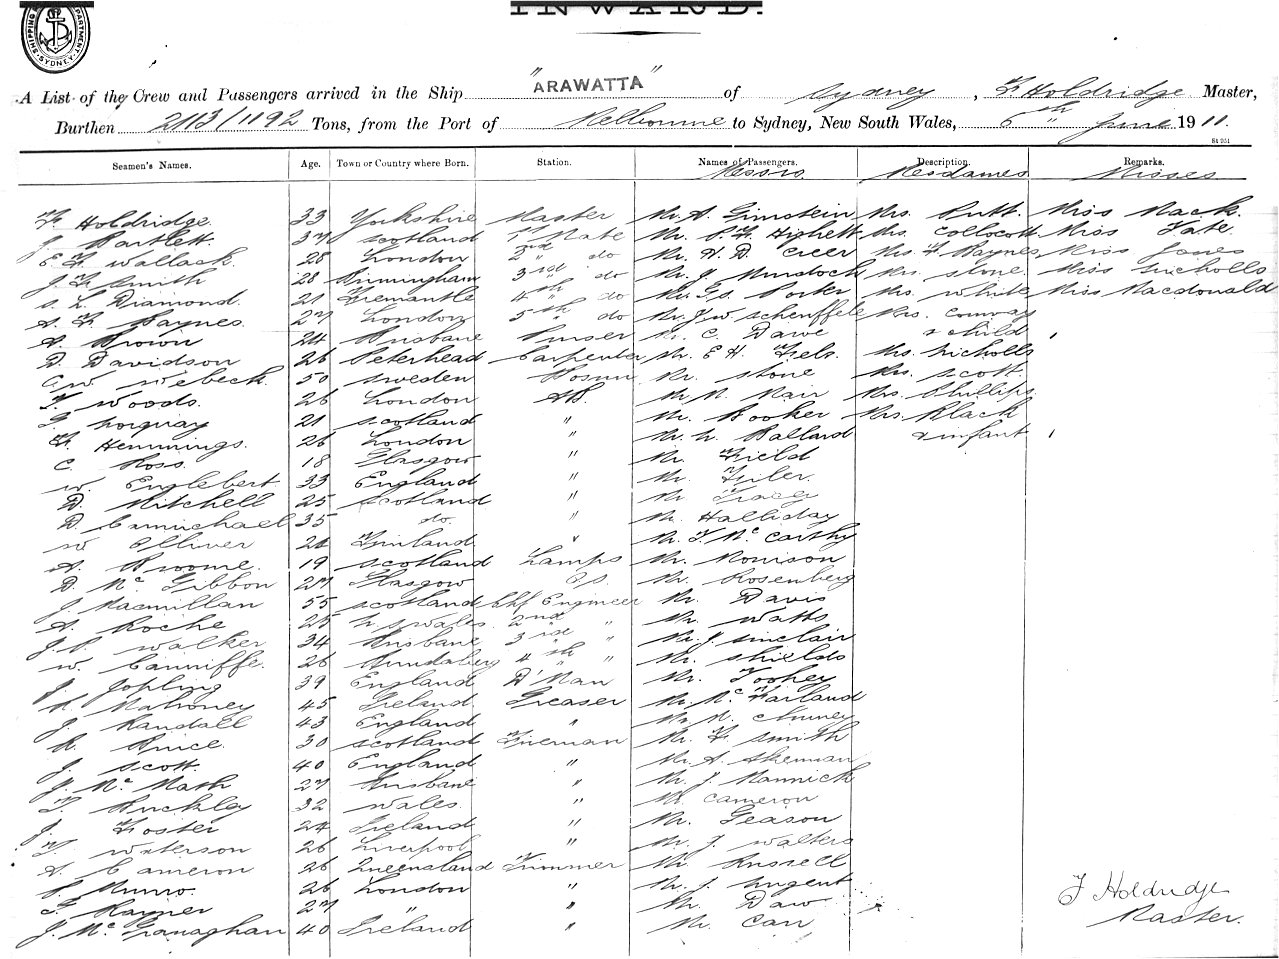 INWARD.
SHIPPING DEPARTMENT SYDNEY
A List of the Crew and Passengers arrived in the Ship "ARAWATTA" of Sydney, F Holdridge Master,
Burthen 2113/1192 Tons, from the Port of Melbourne to Sydney, New South Wales, 6th June 1911.
St 251
Seamen's Names. Age. Town or Country where Born. Station. Names of Passengers. Description. Remarks.
Messrs. Mesdames Misses
F Holdridge 33 Yorkshire Master Mr. A. Mrs. Rutt. Miss Mack.
J. Bartlett 37 Scotland 1st Mate Mr. P. F. Highett Mrs. Collocott Miss Tate.
E F Wallack. 28 London 2nd do Mr. H. D. Creer Mrs. F. Haynes Miss Jones
J. F. Smith 28 Birmingham 3rd do Mr. J. Murdoch Mrs. Stone. Miss Nicholls
S. L. Diamond. 21 Fremantle 4th do Mr. G. S. Porter Mrs. White Miss Macdonald
A. F. Haynes. 27 London 5th do Mr. J W Scheuffele Mrs. Conway
A. Brown 24 Brisbane Purser Mr. C. Dawe & child 1
D. Davidson 26 Peterhead Carpenter Mr. E. H. Fels. Mrs. Nicholls
C W Webeck. 50 Sweden Bosun Mr. Stone Mrs. Scott
F. Woods. 26 London AB. Mr N. Nair Mrs. Phillips
G. Torquay 21 Scotland " Mr. Booker Mrs. Black
F. Hemmings. 26 London " Mr. N. Ballard & infant 1
C. Ross. 18 Glasgow " Mr. Field
W. Englebert 33 England " Mr. Tiler.
D. Mitchell 25 Scotland " Mr Tracy
D. Carmichael 35 do. " Mr. Halliday
W Olliver 26 Finland " Mr. T. McCarthy
A. Broome. 19 Scotland Lamps Mr. Morrison
D. McGibbon 27 Glasgow P.S. Mr. Rosenberg
J. Macmillan 55 Scotland Chf Engineer Mr. Davis
A. Roche 25 N S Wales. 2nd " Mr. Watts
J. S. Walker 34 Brisbane 3rd " Mr. J. Sinclair
W. Canniffe. 26 Bundaberg 4th " Mr. Shields
J. Jopling 39 England D'Man Mr. Toohey
M. Mahoney 45 Ireland. Greaser Mr. McFarland
J. Randall 43 England " Mr. N.
R. Bruce 30 Scotland Fireman Mr. F. Smith
J. Scott. 40 England " Mr. A. Akerman
J. McMath 27 Brisbane " Mr. J. Mannick
T. Buckley 32 Wales. " Mr. Cameron
J. Foster 24 Ireland " Mr. Gleason
T. Waterson 26 Liverpool " Mr. J. Walters
A. Cameron 26 Queensland Trimmer Mr. Russell
P. Munro. 26 London " Mr. J. Nugent
F. Rayner 27 " " Mr. Daw
J. McGranaghan 40 Ireland " Mr. Carr
F Holdridge
Master.